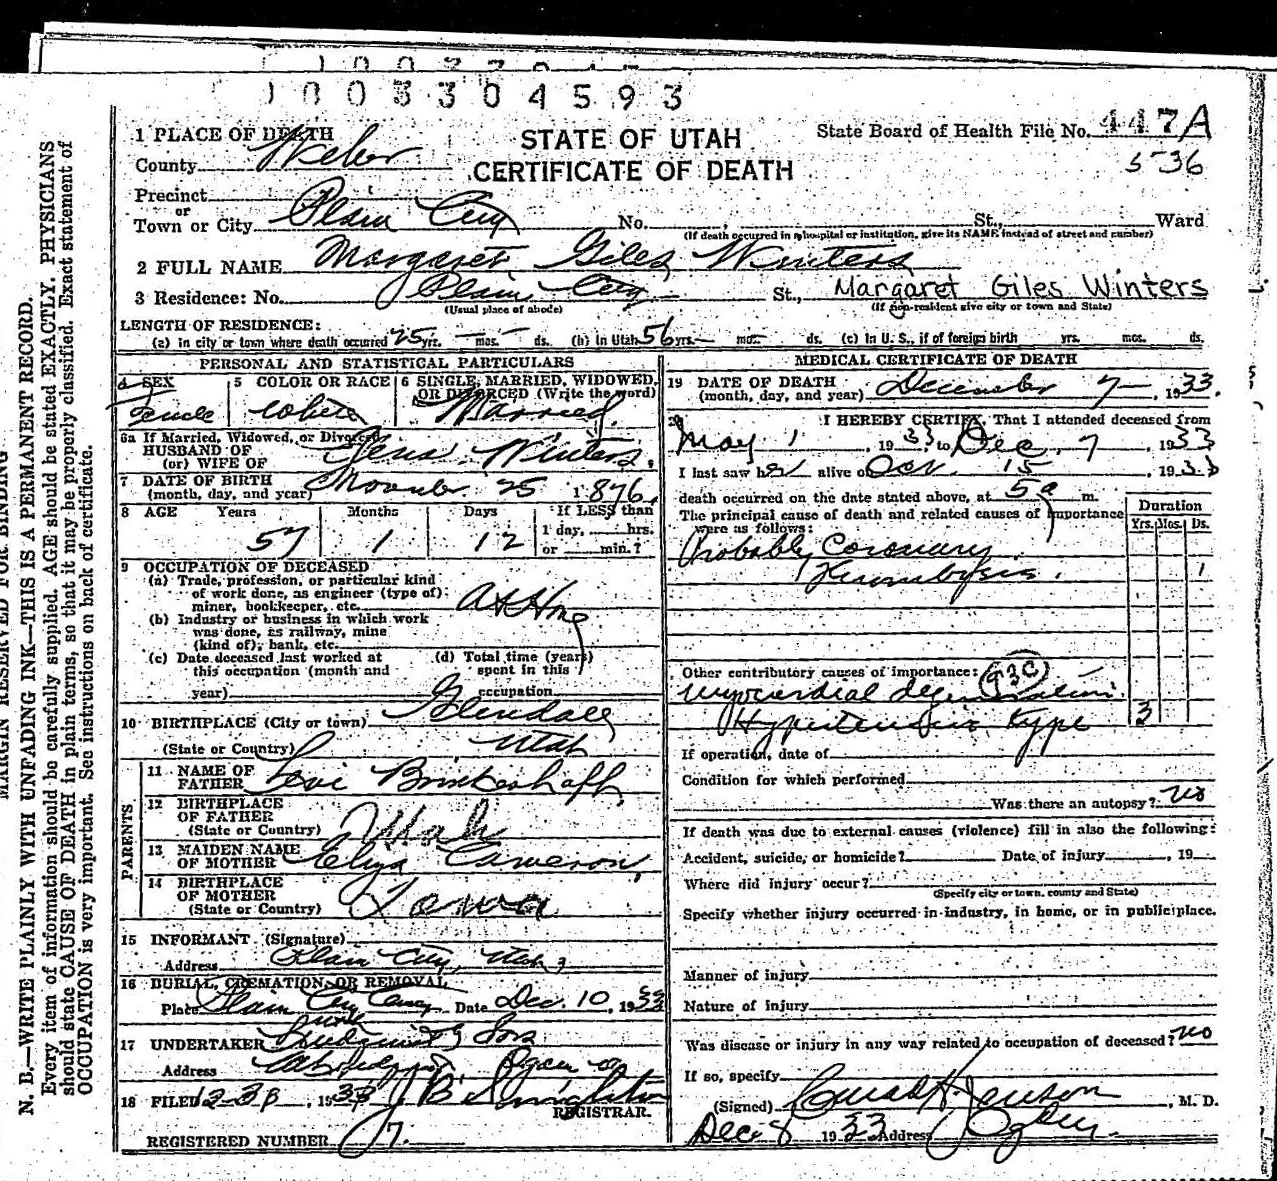 1003304593
1 PLACE OF DEATH
STATE OF UTAH
State Board of Health File No. 447A
County Weber
CERTIFICATE OF DEATH
536
Precinct
or
Town or City Plain City No. St., Ward
(If death occurred in a hospital or institution, give its NAME instead of street and number)
2 FULL NAME Margaret Giles Winters
3 Residence: No. Plain City St., Margaret Giles Winters
(Usual place of abode) (If non-resident give city or town and State)
LENGTH OF RESIDENCE:
(a) in city or town where death occurred 25 yrs. mos. ds. (b) In Utah 56 yrs. mos. ds. (c) In U. S., if of foreign birth yrs. mos. ds.
PERSONAL AND STATISTICAL PARTICULARS
4 SEX
Female
5 COLOR OR RACE
White
6 SINGLE, MARRIED, WIDOWED,
OR DIVORCED (Write the word)
Married
6a If Married, Widowed, or Divorced
HUSBAND OF
(or) WIFE OF Winters
7 DATE OF BIRTH
(month, day, and year) November 25 1876
8 AGE Years Months Days If LESS than
57 1 12 1 day, hrs.
or min.?
9 OCCUPATION OF DECEASED
(a) Trade, profession, or particular kind
of work done, as engineer (type of)
miner, bookkeeper, etc. At Home
(b) Industry or business in which work
was done, as railway, mine
(kind of), bank, etc.
(c) Date deceased last worked at
this occupation (month and
year)
(d) Total time (years)
spent in this
occupation
10 BIRTHPLACE (City or town) Glendale
(State or Country) Utah
PARENTS
11 NAME OF
FATHER Levi Brinkerhoff
12 BIRTHPLACE
OF FATHER
(State or Country) Utah
13 MAIDEN NAME
OF MOTHER Eliza Cameron
14 BIRTHPLACE
OF MOTHER
(State or Country) Iowa
15 INFORMANT (Signature)
Address Plain City, Utah
16 BURIAL, CREMATION, OR REMOVAL
Place Plain City Cemey Date Dec. 10, 1933
17 UNDERTAKER & Sons
Address Ogden
18 FILED 12-38, 1933 J B Singleton
REGISTRAR.
REGISTERED NUMBER 7.
MEDICAL CERTIFICATE OF DEATH
19 DATE OF DEATH
(month, day, and year) December 7 1933.
20 I HEREBY CERTIFY, That I attended deceased from
May 1, 1933, to Dec. 7 1933
I last saw her alive on Oct. 15 1933
death occurred on the date stated above, at 5 a m.
The principal cause of death and related causes of importance
were as follows:
Duration
Yrs. Mos. Ds.
Probably Coronary
Thrombosis. 1
Other contributory causes of importance: 93C
Myocardial degeneration
Hypertensive type 3
If operation, date of
Condition for which performed
Was there an autopsy? no
If death was due to external causes (violence) fill in also the following:
Accident, suicide, or homicide? Date of injury , 19
Where did injury occur?
(Specify city or town, county and State)
Specify whether injury occurred in industry, in home, or in public place.
Manner of injury
Nature of injury
Was disease or injury in any way related to occupation of deceased? no
If so, specify
(Signed) Conrad H. Jenson, M. D.
Dec 8 1933 Address Ogden
MARGIN RESERVED FOR BINDING
N. B.—WRITE PLAINLY WITH UNFADING INK—THIS IS A PERMANENT RECORD.
Every item of information should be carefully supplied. AGE should be stated EXACTLY. PHYSICIANS
should state CAUSE OF DEATH in plain terms, so that it may be properly classified. Exact statement of
OCCUPATION is very important. See instructions on back of certificate.